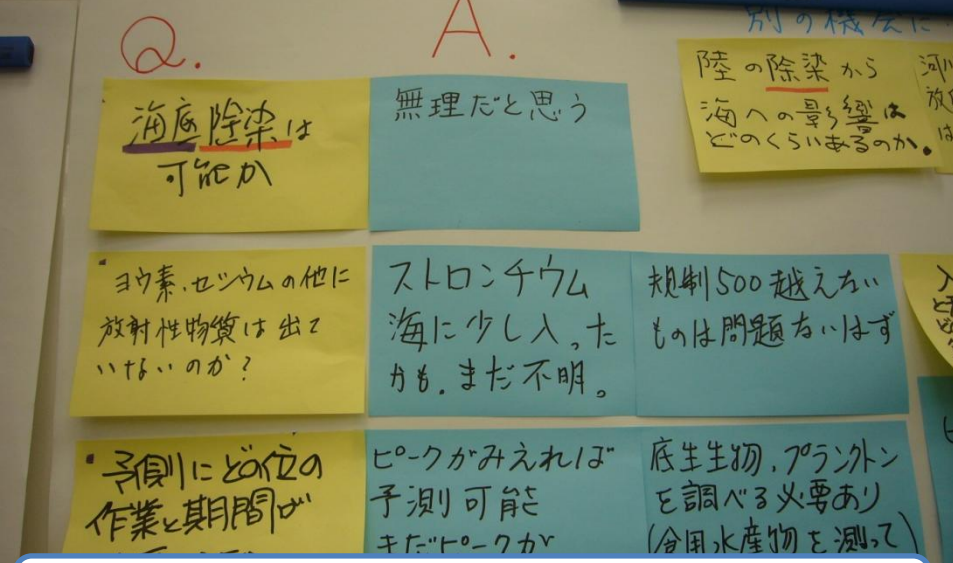 Q.
A.
別の機会に
海底除染は
可能か
無理だと思う
陸の除染から
海への影響は
どのくらいあるのか.
河川
放
は
ヨウ素、セシウムの他に
放射性物質は出て
いないのか?
ストロンチウム
海に少し入った
かも.まだ不明。
規制500越えない
ものは問題ないはず
入
予測にどの位の
作業と期間が
ピークがみえれば
予測可能
まだピークが
底生生物、プランクトン
を調べる必要あり
(食用水産物を測って